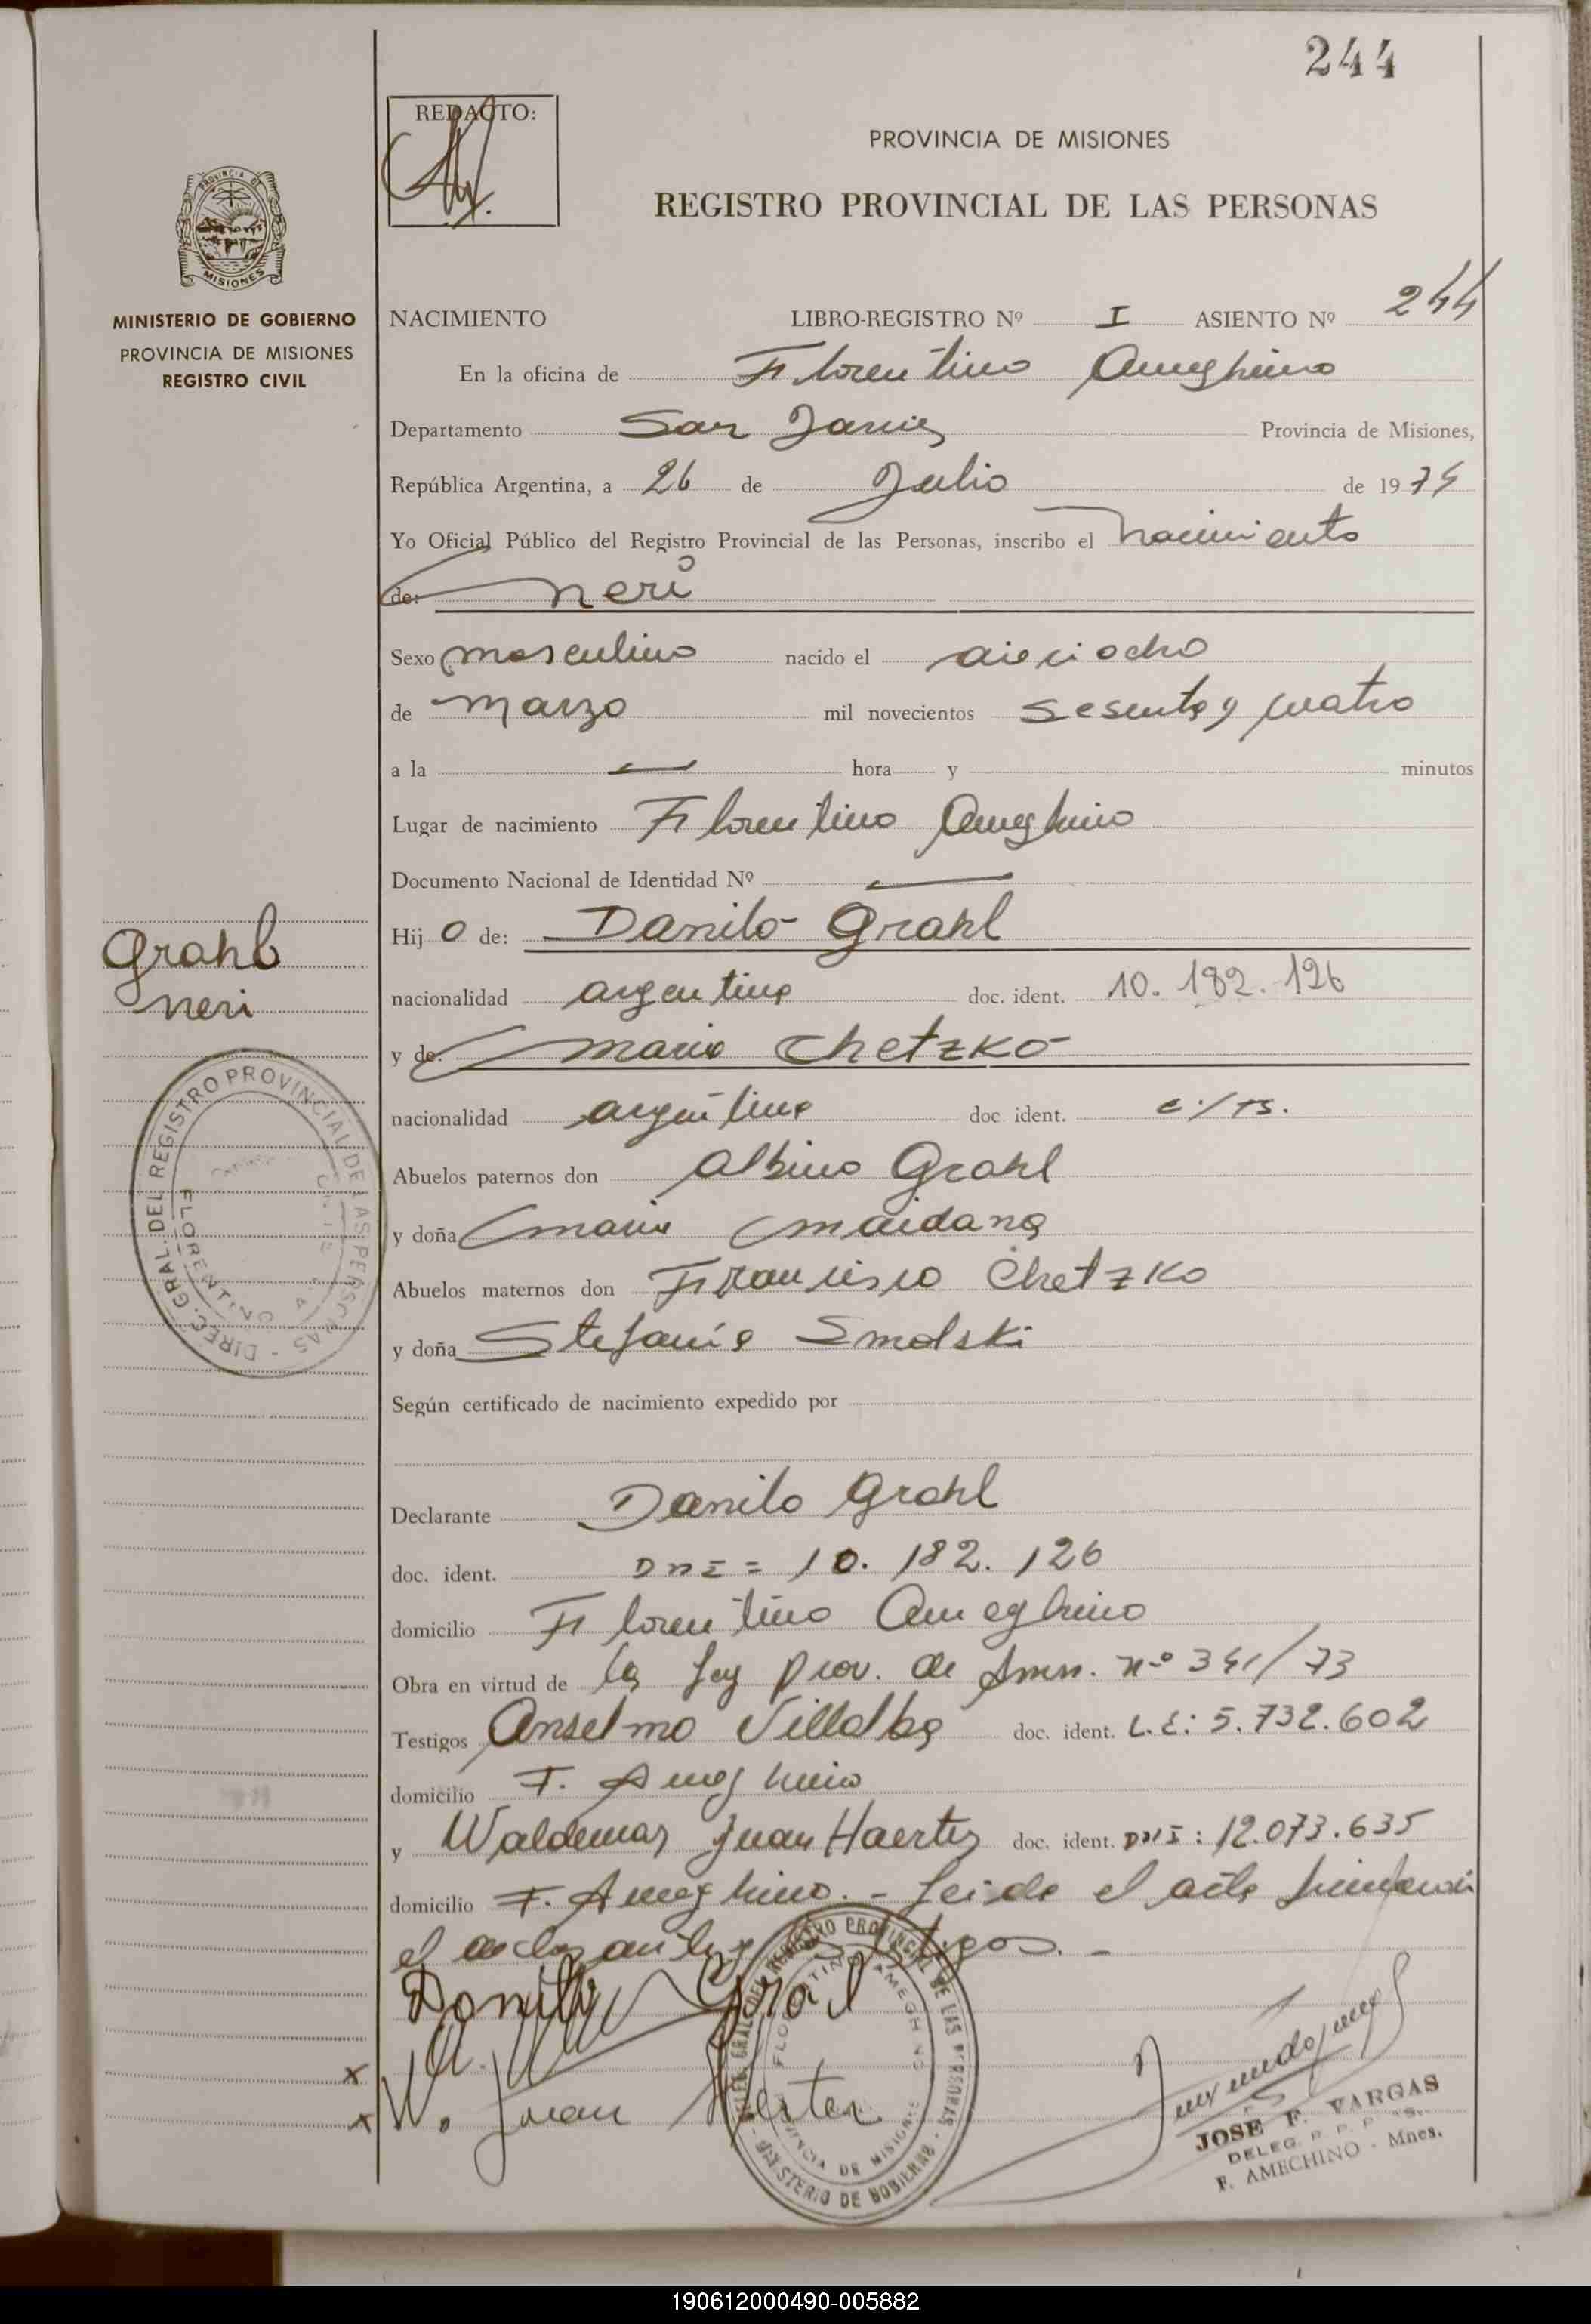 244
REDACTO:
PROVINCIA DE MISIONES
REGISTRO PROVINCIAL DE LAS PERSONAS
PROVINCIA DE
MISIONES
MINISTERIO DE GOBIERNO
PROVINCIA DE MISIONES
REGISTRO CIVIL
NACIMIENTO LIBRO-REGISTRO Nº I ASIENTO Nº 244
En la oficina de Florentino Ameghino
Departamento San Javier Provincia de Misiones,
República Argentina, a 26 de Julio de 1974
Yo Oficial Público del Registro Provincial de las Personas, inscribo el nacimiento
de: neri
Sexo masculino nacido el dieciocho
de marzo mil novecientos sesenta y cuatro
a la hora y minutos
Lugar de nacimiento Florentino Ameghino
Documento Nacional de Identidad Nº
Hijo de: Danilo Grahl
Grahl
neri
nacionalidad argentina doc. ident. 10.182.126
y de: maria Chetzko
nacionalidad argentina doc ident.
Abuelos paternos don Albino Grahl
y doña maria maidana
Abuelos maternos don Francisco Chetzko
y doña Stefania Smolski
DIREC. GRAL. DEL REGISTRO PROVINCIAL DE LAS PERSONAS
FLORENTINO
Según certificado de nacimiento expedido por
Declarante Danilo Grahl
doc. ident. DNI = 10.182.126
domicilio Florentino Ameghino
Obra en virtud de la Ley Prov. de Amn. nº 341/73
Testigos Anselmo Villalba doc. ident. L.E: 5.732.602
domicilio F. Ameghino
y Waldemar Juan Haerter doc. ident. DNI: 12.073.635
domicilio F. Ameghino. - Leida el acta firmaron
el declarante y testigos. -
Danilo Gral
W. Juan Herter
DELEG. GRAL. DEL REGISTRO PROVINCIAL DE LAS PERSONAS
FLORENTINO AMEGHINO
PROVINCIA DE MISIONES
MINISTERIO DE GOBIERNO
JOSE F. VARGAS
DELEG. R. P. P.
F. AMECHINO - Mnes.
190612000490-005882